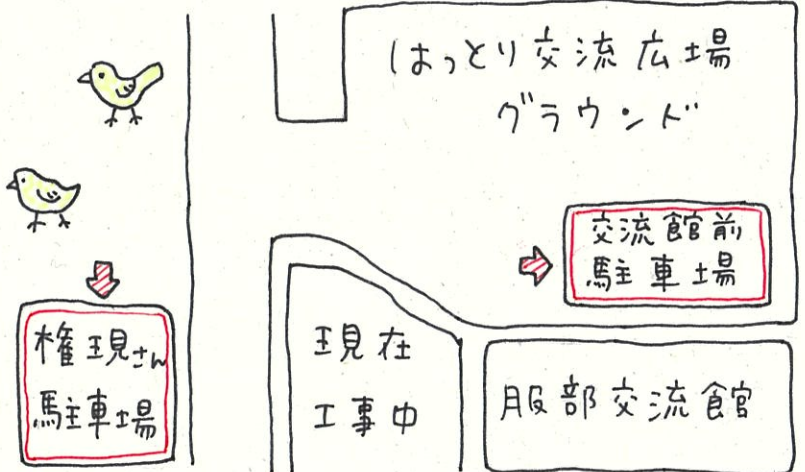 はっとり交流広場
グラウンド
交流館前
駐車場
権現さん
駐車場
現在
工事中
服部交流館